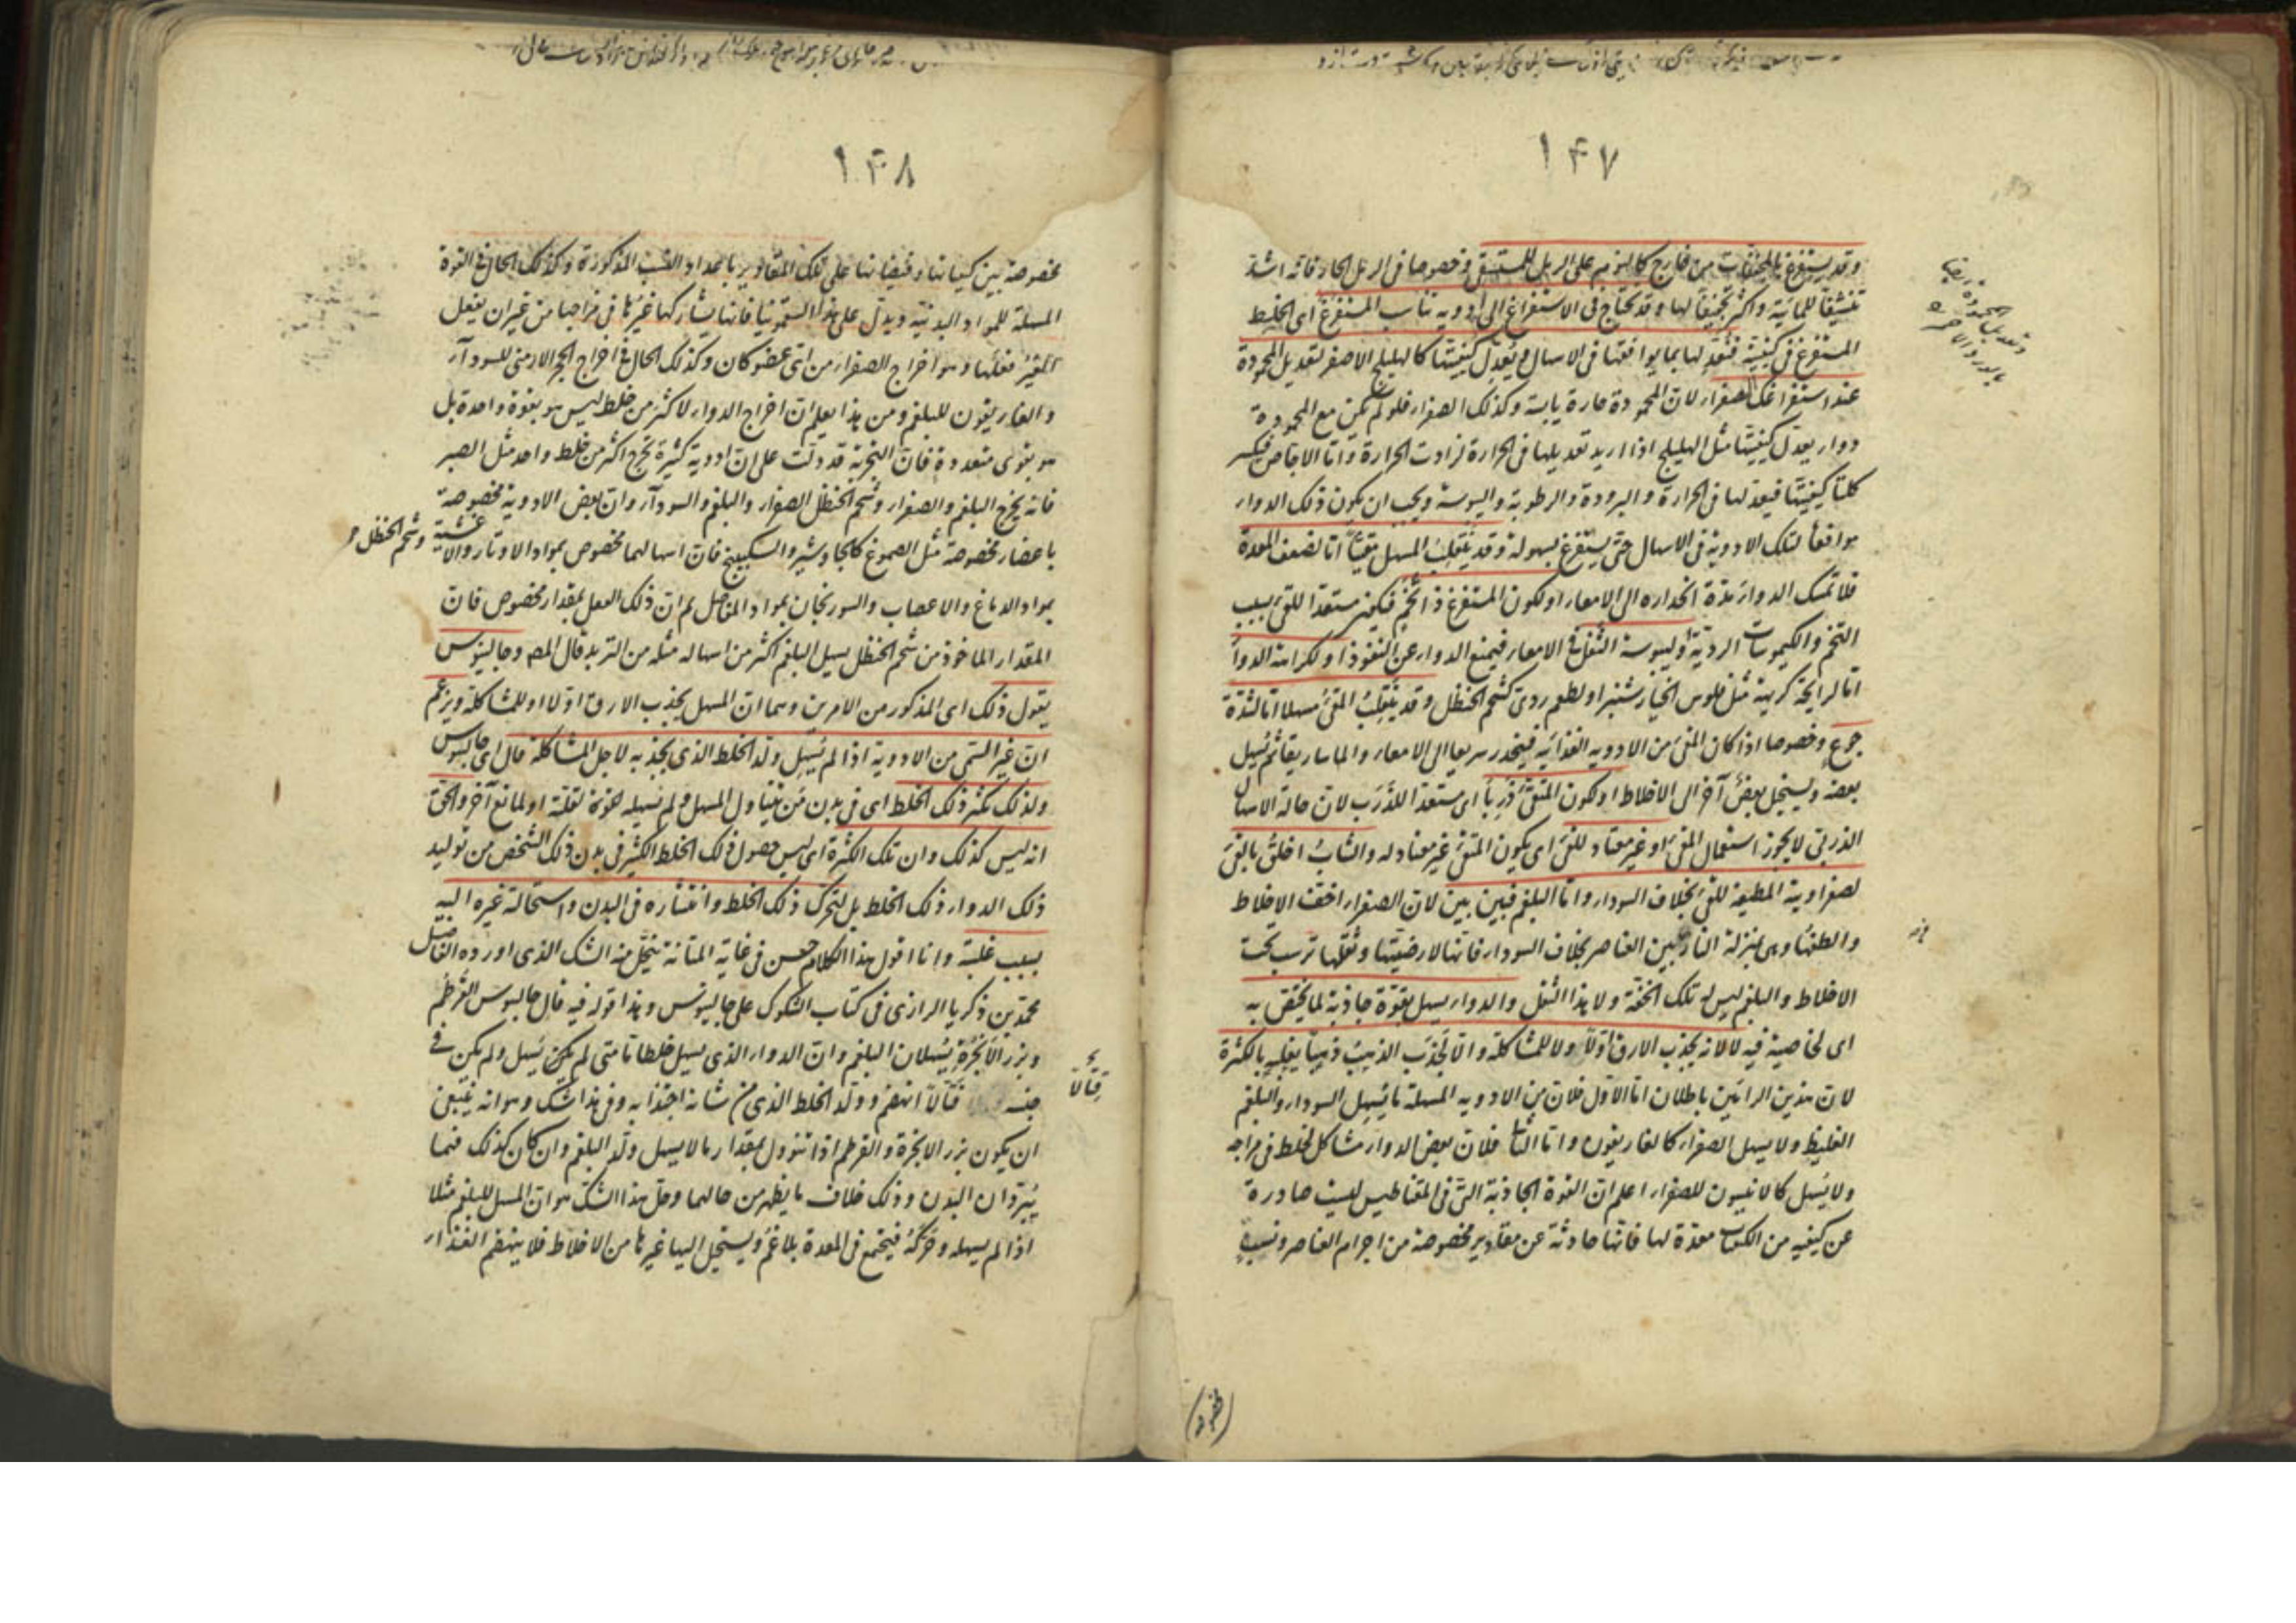 ١٤٧
وقد يستفرغ بالمجففات من خارج كالنوم على الرمل للمستسقى وخصوصا فى الرمل الحار فانه اشد
تنشيفا للمائية واكثر تجفيفا لها وقد يحتاج فى الاستفراغ الى ادوية تناسب المستفرغ اى الخلط
المستفرغ فى كيفيته فتعد لها بما يوافقها فى الاسهال ويعدل كيفيتها كالهليلج الاصفر لتعديل المحمودة
عند استفراغك الصفراء لان المحمودة حارة يابسة وكذلك الصفراء فلو لم يكن مع المحمودة
دواء يعدل كيفيتها مثل الهليلج اذا اريد تعديلها فى الحرارة لزادت الحرارة واما الاجاص فيكسر
كلتا كيفيتها فيعدلها فى الحرارة والبرودة والرطوبة واليبوسة ويجب ان يكون ذلك الدواء
موافقا لتلك الادوية فى الاسهال حتى يستفرغ بسهولة وقد ينقلب المسهل مقيئا اما لضعف المعدة
فلا تمسك الدواء مدة انحداره الى الامعاء او لكون المستفرغ ذا تخم فيكون مستعدا للقئ بسبب
التخم والكيموسات الردية وليبوسة الثفل فى الامعاء فيمنع الدواء عن النفوذ او لكراهة الدواء
اما لرايحة كريهة مثل فلوس الخيار شنبر او لطعم ردى كشحم الحنظل وقد ينقلب المقئ مسهلا اما لشدة
جوع وخصوصا اذا كان المقئ من الادوية الغذائية فينحدر سريعا الى الامعاء والماساريقا ثم يسهل
بعضه ويستحيل بعض آخر الى الاخلاط او لكون المتقئ ذربا اى مستعدا للذرب لان حالة الاسهال
الذربى لا يجوز استعمال المقئ او غير معتاد للقئ اى يكون المتقئ غير معتاد له والشاب اخلق بالقئ
لصفراوية المطيعة للقئ بخلاف السوداء واما البلغم فبين بين لان الصفراء اخف الاخلاط
والطفها وهى بمنزلة النار بين العناصر بخلاف السوداء فانها لارضيتها وثقلها ترسب تحت
الاخلاط والبلغم ليس له تلك الخفة ولا هذا الثقل والدواء يسهل بقوة جاذبة لما يختص به
اى لخاصية فيه لا لانه يجذب الارق اولا ولا للمشاكلة والا لجذب الذهب ذهبا يغلبه بالكثرة
لان هذين الرائين باطلان اما الاول فلان من الادوية المسهلة ما يسهل السوداء والبلغم
الغليظ ولا يسهل الصفراء كالغاريقون واما الثانى فلان بعض الدواء مشاكل لخلط فى مزاجه
ولا يسهل كالانيسون للصفراء اعلم ان القوة الجاذبة التى فى المقناطيس ليست صادرة
عن كيفية من الكيفيات معدة لها فانها حادثة عن مقادير مخصوصة من اجرام العناصر ونسبة
مخصوصة
١٤٨
مخصوصة بين كيفياتها وفيضانها على تلك المقادير باعداد النسب المذكورة وكذلك الحال فى القوة
المسهلة للمواد البدنية ويدل على هذا السقمونيا فانها يشاركها غيرها فى مزاجها من غير ان يفعل
الغير فعلها وهو اخراج الصفراء من اى عضو كان وكذلك الحال فى اخراج الحجر الارمنى للسوداء
والغاريقون للبلغم ومن هذا يعلم ان اخراج الدواء لاكثر من خلط ليس هو بقوة واحدة بل
هو بقوى متعددة فان التجربة قد دلت على ان ادوية كثيرة تخرج اكثر من خلط واحد مثل الصبر
فانه يخرج البلغم والصفراء وشحم الحنظل الصفراء والبلغم والسوداء وان بعض الادوية مخصوصة
باعضاء مخصوصة مثل الصموغ كالجاوشير والسكبينج فان اسهالهما مخصوص بمواد الاوتار والاغشية وشحم الحنظل
بمواد الدماغ والاعصاب والسورنجان بمواد المفاصل ثم ان ذلك الفعل بمقدار مخصوص فان
المقدار الماخوذ من شحم الحنظل يسهل البلغم اكثر من اسهاله مثله من التربد قال المصـ وجالينوس
يقول ذلك اى المذكور من الامرين وهما ان المسهل يجذب الارق اولا او للمشاكلة ويزعم
ان غير السمى من الادوية اذا لم يسهل ولد الخلط الذى يجذبه لاجل المشاكلة قال اى جالينوس
ولذلك يكثر ذلك الخلط اى فى بدن من يتناول المسهل ولم يسهله لقوة لقلته او لمانع آخر والحق
انه ليس كذلك وان تلك الكثرة اى ليس حصول ذلك الخلط الكثير فى بدن ذلك الشخص من توليد
ذلك الدواء ذلك الخلط بل لتحرك ذلك الخلط وانتشاره فى البدن واستحالة غيره اليه
بسبب غلبته وانا اقول هذا الكلام حسن فى غاية المتانة ينحل منه الشك الذى اورده الفاضل
محمد بن زكريا الرازى فى كتاب الشكوك على جالينوس وهذا قوله فيه قال جالينوس القرطم
وبزر الانجرة يسهلان البلغم وان الدواء الذى يسهل خلطا ما متى لم يكن يسهل ولم يكن فى
جنسه قتالا انهضم وولد الخلط الذى من شانه اجتذابه وفى هذا شك وهو انه ينبغى
قتالا
ان يكون بزر الانجرة والقرطم اذا تنوول بمقدار ما لا يسهل ولد البلغم وان كان كذلك فهما
يبردان البدن وذلك خلاف ما يظهر من حالهما وحل هذا الشك هو ان المسهل للبلغم مثلا
اذا لم يسهله وحركه فيجتمع فى المعدة بلاغم ويستحيل اليها غيرها من الاخلاط فلا ينهضم الغذاء